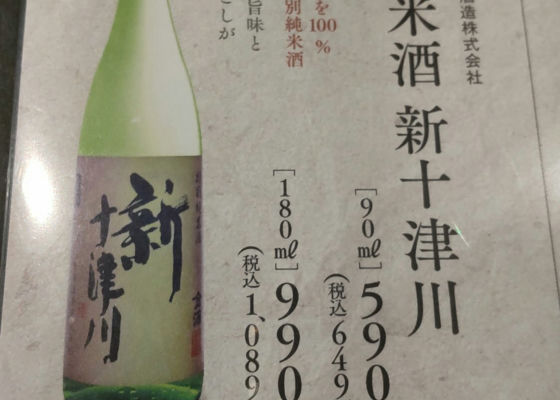 酒造株式会社
米酒 新十津川
[90㎖]590
(税込)649
[180㎖]990
(税込)1,089
を100%
別純米酒
旨味と
こしが
新
十津川